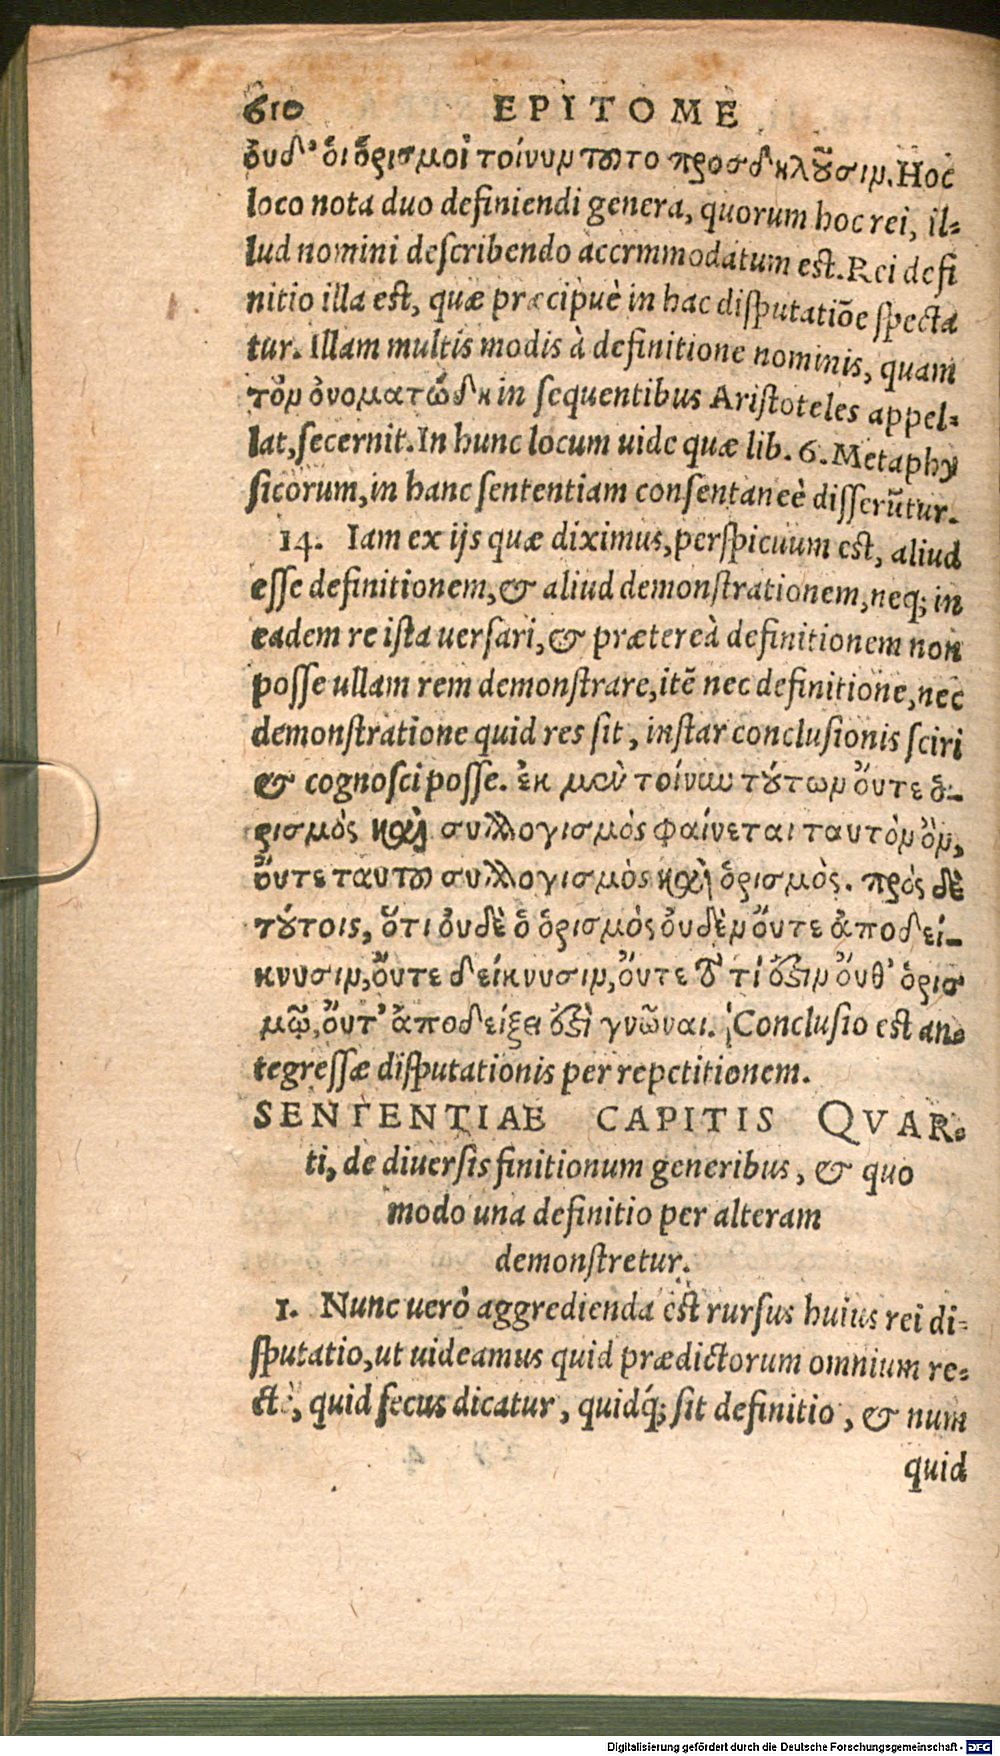 610 EPITOME
ὀυδ' ὁι ὁρισμοὶ τοίνυν τοῦτο προσδηλοῦσιν. Hoc
loco nota duo definiendi genera, quorum hoc rei, il-
lud nomini describendo accrmmodatum est. Rei defi
nitio illa est, quæ præcipuè in hac disputatiōe specta
tur. Illam multis modis à definitione nominis, quam
τὸν ὀνοματώδη in sequentibus Aristoteles appel-
lat, secernit. In hunc locum uide quæ lib. 6. Metaphy
sicorum, in hanc sententiam consentaneè disserūtur.
14. Iam ex ijs quæ diximus, perspicuum est, aliud
esse definitionem, & aliud demonstrationem, neq; in
eadem re ista uersari, & prætereà definitionem non
posse ullam rem demonstrare, itē nec definitione, nec
demonstratione quid res sit, instar conclusionis sciri
& cognosci posse. ἐκ μὲν τοίνυν τούτων ὄυτε ὁ-
ρισμὸς καὶ συλλογισμὸς φαίνεται ταυτὸν ὂν,
ὄυτε ταυτοῦ συλλογισμὸς καὶ ὁρισμὸς. πρὸς δὲ
τούτοις, ὅτι ὀυδὲ ὁ ὁρισμὸς ὀυδὲν ὄυτε ἀποδεί-
κνυσιν, ὄυτε δείκνυσιν, ὄυτε τὸ τί ἐστιν ὄυθ' ὁρισ
μῷ, ὄυτ' ἀποδείξει ἐστὶ γνῶναι. Conclusio est an-
tegressæ disputationis per repetitionem.
SENTENTIAE CAPITIS QVAR-
ti, de diuersis finitionum generibus, & quo
modo una definitio per alteram
demonstretur.
1. Nunc uerò aggredienda est rursus huius rei di-
sputatio, ut uideamus quid prædictorum omnium re-
ctè, quid secus dicatur, quidq́; sit definitio, & num
quid
Digitalisierung gefördert durch die Deutsche Forschungsgemeinschaft - DFG